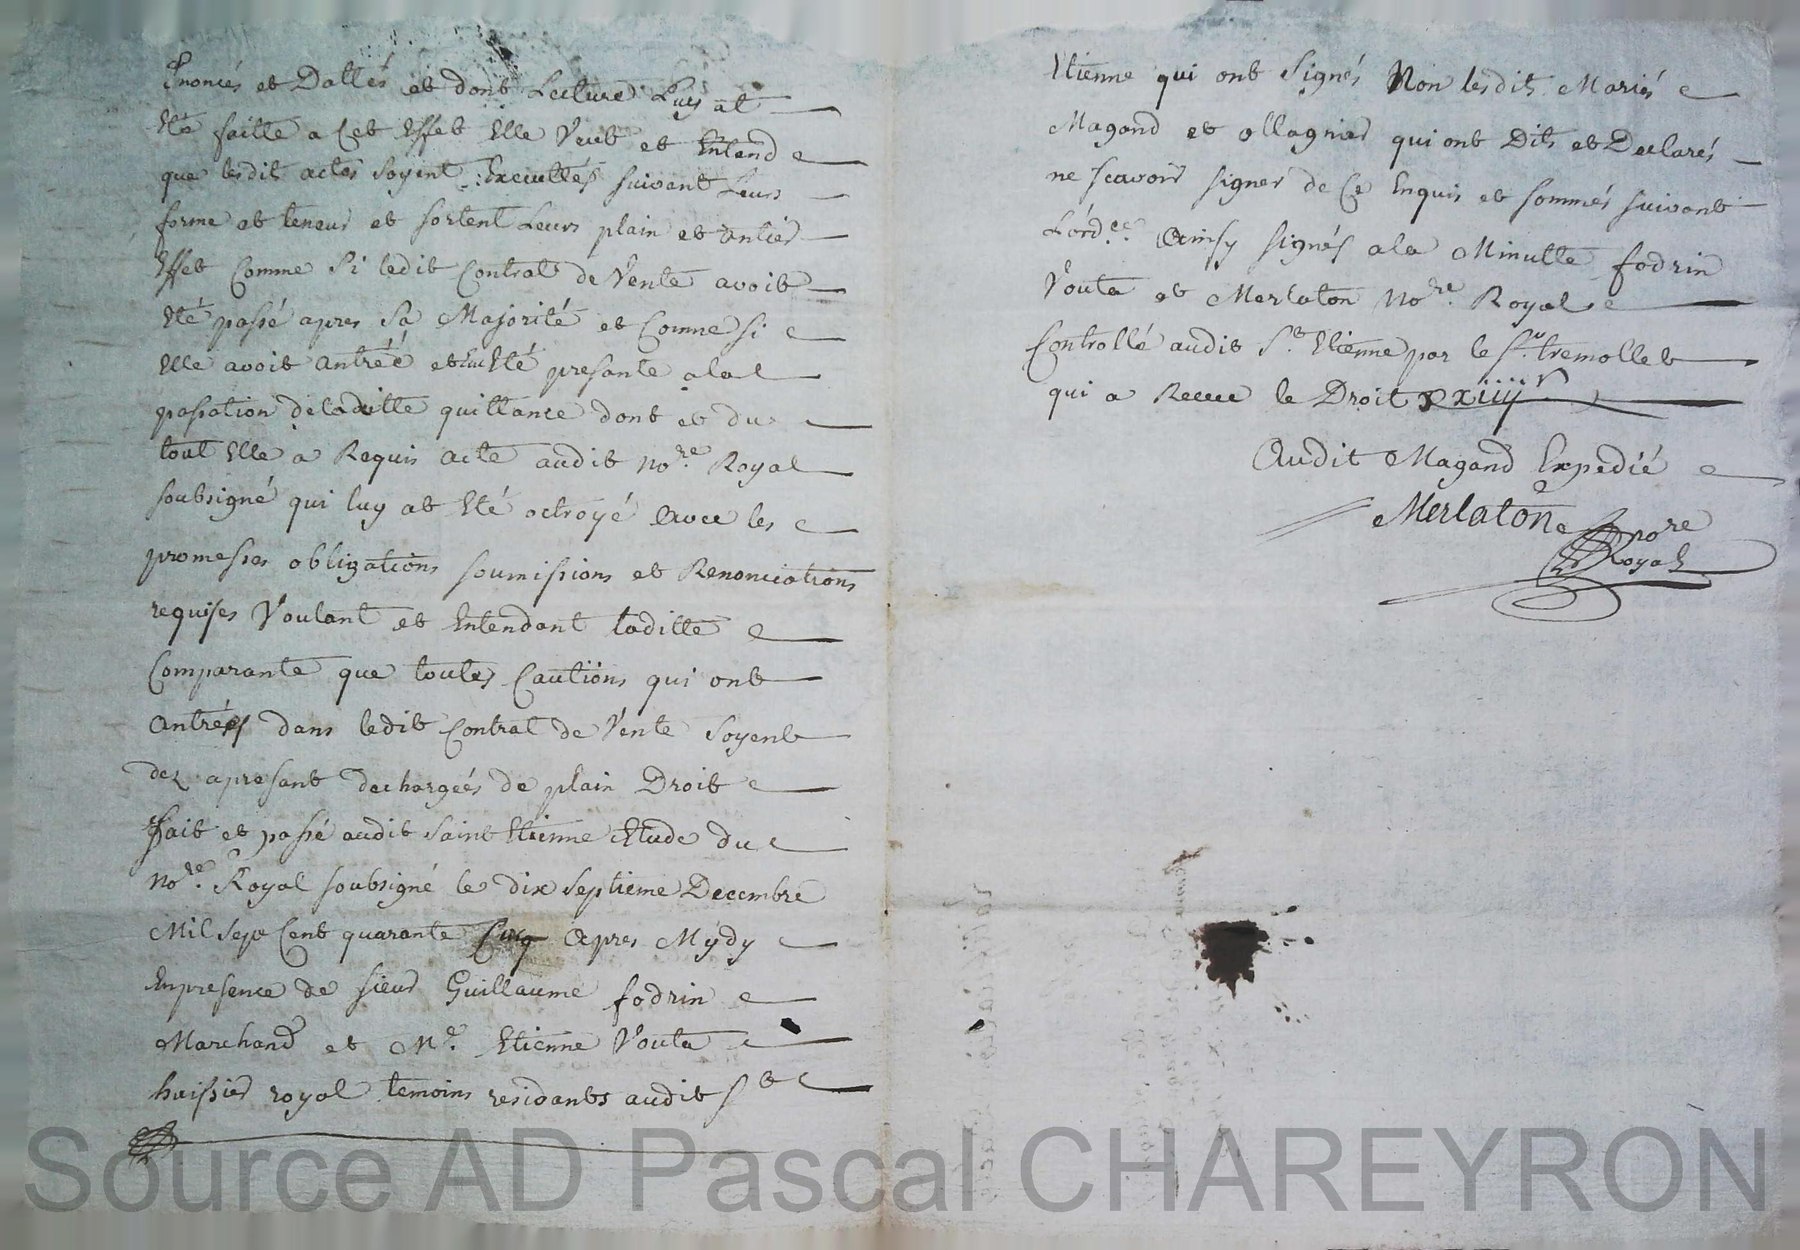 Enoncés et Dattés et dont Lecture Luy at
Eté faitte a Cet Effet Elle Veut et Entend
que lesdits actes Soyent Executtés suivant Leurs
forme et teneur et sortent Leurs plain et entier
Effet Comme Si ledit Contrat de Vente avoit
Eté passé apres Sa Majorité et Comme Si
Elle avoit antréé et Eté presante ala
passation de laditte quittance dont et du
tout Elle a Requis acte audit nore. Royal
soubsigné qui luy at Eté octroyé avec les
promesses obligations soumissions et Renonciations
requises Voulant et Entendant laditte
Comparante que toutes Cautions qui ont
antrées dans ledit Contrat de Vente Soyent
dez apresant dechargéés de plain Droit
fait et passé audit Saint Etienne Etude du
Nore. Royal soubsigné le dix Septieme Decembre
Mil Sept Cent quarante Cinq apres Mydy
Enpresence de sieur Guillaume fodrin
Marchand et Me. Etienne Vouta
huissier royal temoins residants audit St
Etienne qui ont Signés Non lesdits Mariés
Magand et ollagnier qui ont Dits et Declarés
ne scavoir signer de Ce Enquis et sommés suivant
Lórdce. Ainsy signés ala Minutte fodrin
Vouta et Merlaton Nore. Royal
Controllé audit St. Etienne par le Sr. tremollet
qui a Receu le Droit xxiiij s
Audit Magand Expedié
Merlaton nore
Royal
Source AD Pascal CHAREYRON